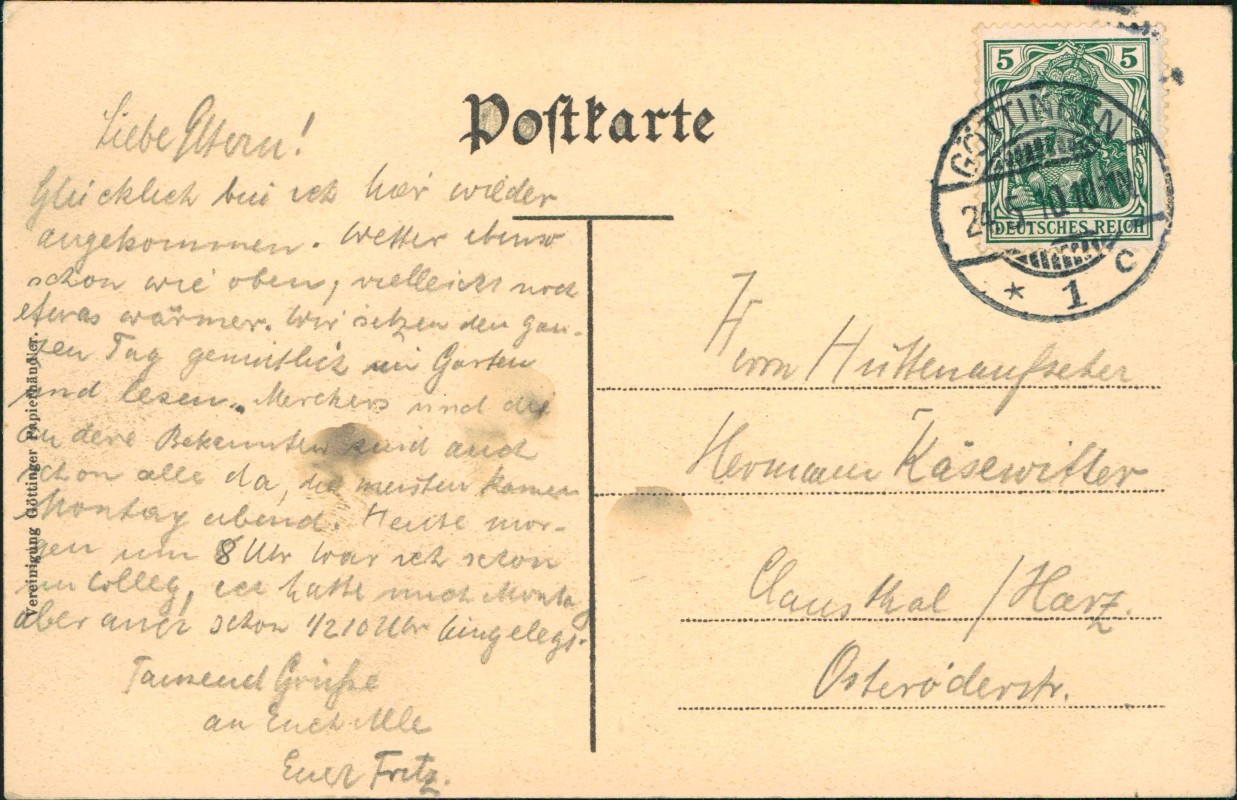 Postkarte
5 5
DEUTSCHES REICH
GÖTTINGEN
24.5.10.10-11V
* 1 c
Liebe Eltern!
Glücklich bin ich hier wieder
angekommen. Wetter ebenso
schön wie oben, vielleicht noch
etwas wärmer. Wir sitzen den gan-
zen Tag gemütlich im Garten
und lesen. Merckers und die
andere Bekannten sind auch
schon alle da, die meisten kamen
Montag abend. Heute mor-
gen um 8 Uhr war ich schon
im Colleg, ich hatte mich Montag
aber auch schon 1/2 10 Uhr hingelegt.
Tausend Grüße
an Euch Alle
Euer Fritz.
Herrn Hüttenaufseher
Hermann Käsewitter
Clausthal / Harz.
Osteröderstr.
Vereinigung Göttinger Papierhändler.